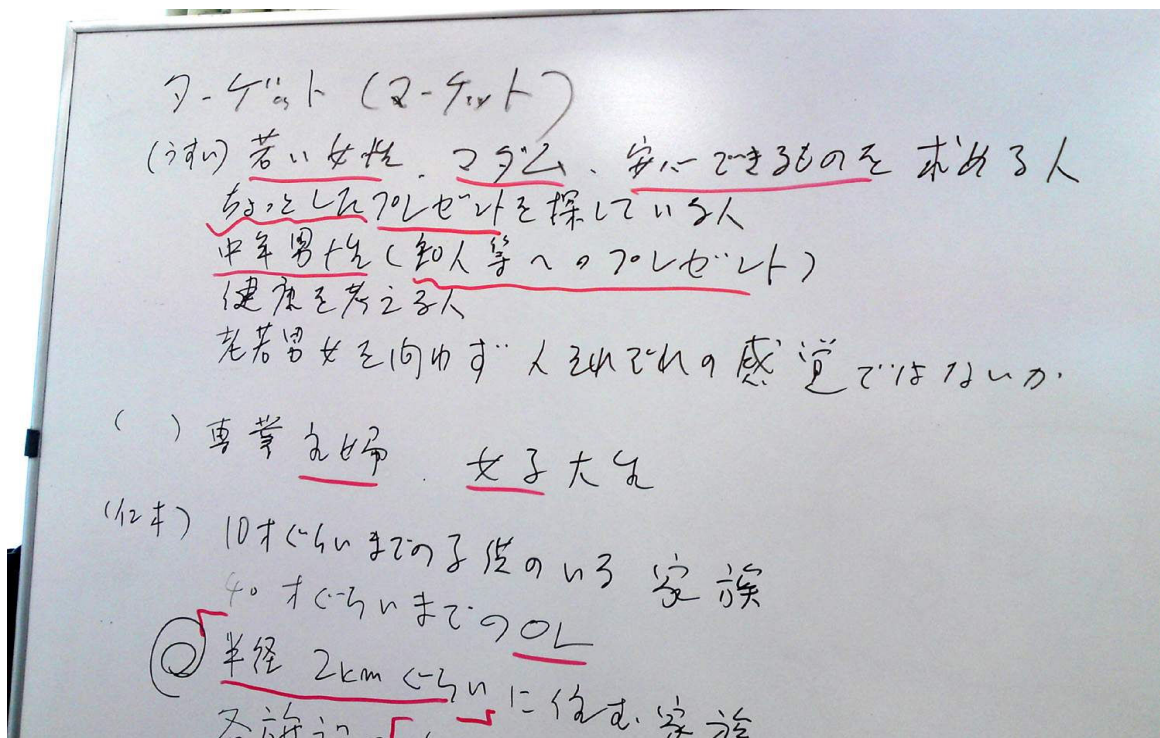 ターゲット(マーケット)
(うすい) 若い女性、マダム、安心できるものを求める人
ちょっとしたプレゼントを探している人
中年男性(知人等へのプレゼント)
健康を考える人
老若男女を问わず 人それぞれの感覚ではないか
( ) 専業主婦、女子大生
10才ぐらいまでの子供のいる 家族
40才ぐらいまでのOL
◎ 半径 2kmぐらいに住む、家族